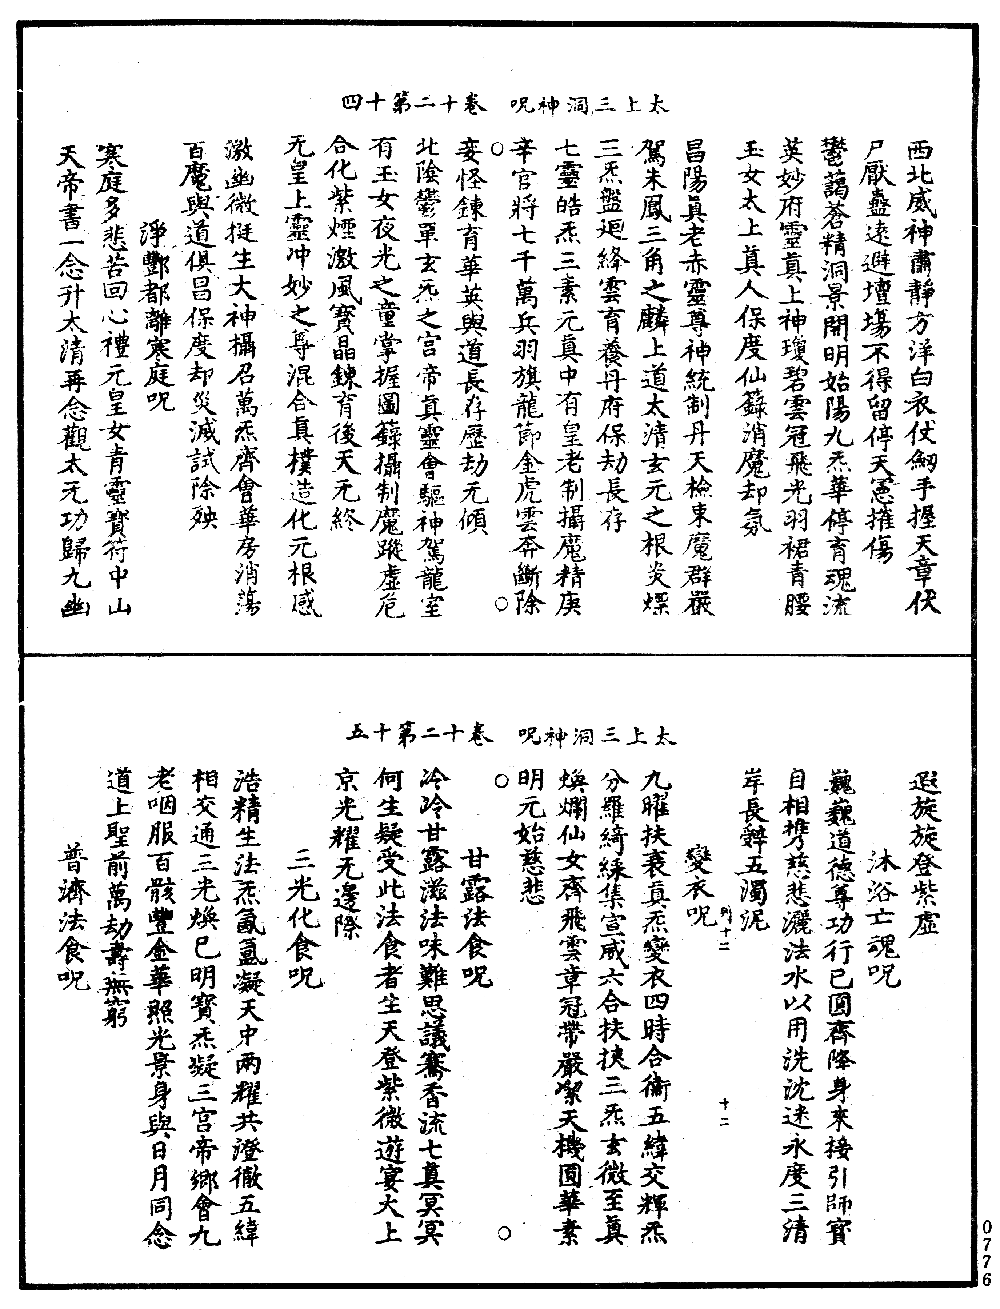 太上三洞神呪　卷十二第十四
西北威神肅靜方洋白衣仗劒手握天章伏
尸厭蠱遠避壇場不得留停天憲摧傷
鬱藹蒼精洞景開明始陽九炁華停育魂流
英妙府靈真上神瓊碧雲冠飛光羽裙青腰
玉女太上真人保度仙籙消魔却氛
昌陽真老赤靈尊神統制丹天檢束魔群嚴
駕朱鳳三角之麟上道太清玄元之根炎煙
三炁盤迴絳雲育養丹府保劫長存
七靈皓炁三素元真中有皇老制攝魔精庚
辛官將七千萬兵羽旗龍節金虎雲奔斷除
妾怪鍊育華英與道長存歷劫无傾
北陰鬱單玄炁之宮帝真靈會驅神駕龍室
有玉女夜光之童掌握圖籙攝制魔蹤虛危
合化紫煙激風寶晶鍊育後天无終
无皇上靈冲妙之尊混合真樸造化元根感
激幽微挺生大神攝召萬炁齊會華房消蕩
百魔與道俱昌保度却災滅試除殃
淨酆都離寒庭呪
寒庭多悲苦回心禮元皇女青靈寶符中山
天帝書一念升太清再念觀太无功歸九幽
太上三洞神呪　卷十二第十五
遐旋旋登紫虛
沐浴亡魂呪
巍巍道德尊功行已圓齊降身來接引師寶
自相攜慈悲灑法水以用洗沈迷永度三清
岸長辭五濁泥
變衣呪
九曜扶衰真炁變衣四時合衛五緯交輝炁
分羅綺綵集宣威六合扶挾三炁玄微至真
煥爛仙女齊飛雲章冠帶嚴潔天機圓華素
明元始慈悲
甘露法食呪
泠泠甘露滋法味難思議騫香流七真冥冥
何生疑受此法食者生天登紫微遊宴大上
京光耀无邊際
三光化食呪
浩精生法炁氤氳凝天中兩耀共澄徹五緯
相交通三光煥已明寶炁凝三宮帝鄉會九
老咽服百骸豐金華照光景身與日月同念
道上聖前萬劫壽無窮
普濟法食呪
十二
0776